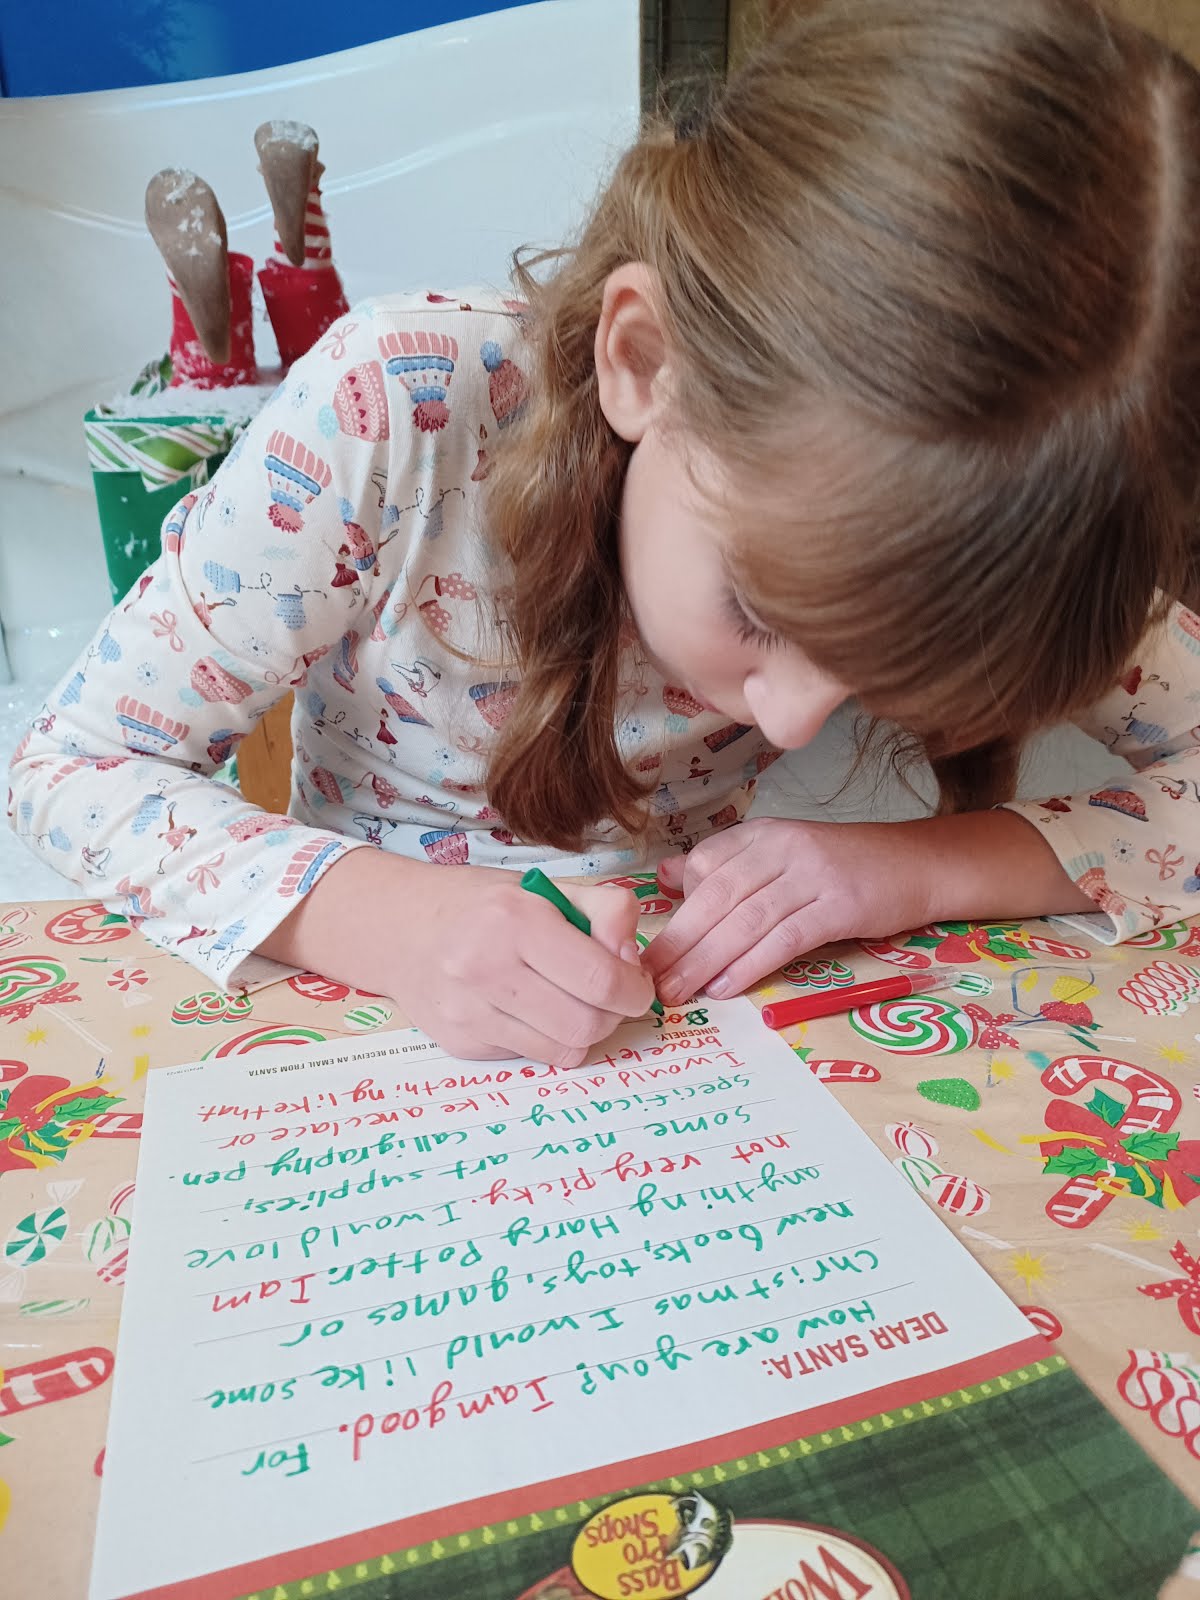 Bass
Pro
Shops
DEAR SANTA:
How are you? I am good. For
christmas I would like some
new books, toys, games or
anything Harry Potter. I am
not very picky. I would love
some new art supplies,
specifically a calligraphy pen.
I would also like a neclace or
bracelet something like that.
SINCERELY:
CHILD TO RECEIVE AN EMAIL FROM SANTA